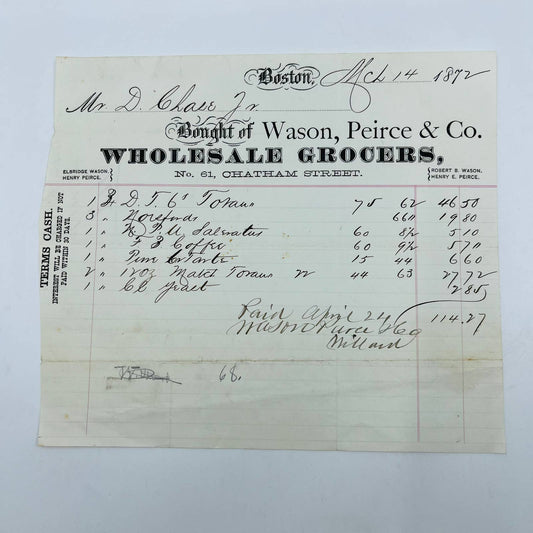 Boston, Mch 14 1872
Mr D. Chase Jr.
Bought of Wason, Peirce & Co.
WHOLESALE GROCERS,
No. 61, CHATHAM STREET.
ELBRIDGE WASON.
HENRY PEIRCE.
ROBERT B. WASON.
HENRY E. PEIRCE.
TERMS CASH.
INTEREST WILL BE CHARGED IF NOT
PAID WITHIN 30 DAYS.
1 D. F. 6s 75 62 46 50
3 " Horsfords 660 19 80
1 " Salratus 60 8½ 5 10
1 " Coffee 60 9½ 5 70
1 " Tarter 15 44 6 60
2 " 12oz 22 44 63 27 72
1 " 2 85
114.27
Paid April 24
Wason Peirce & Co
Millard
68.